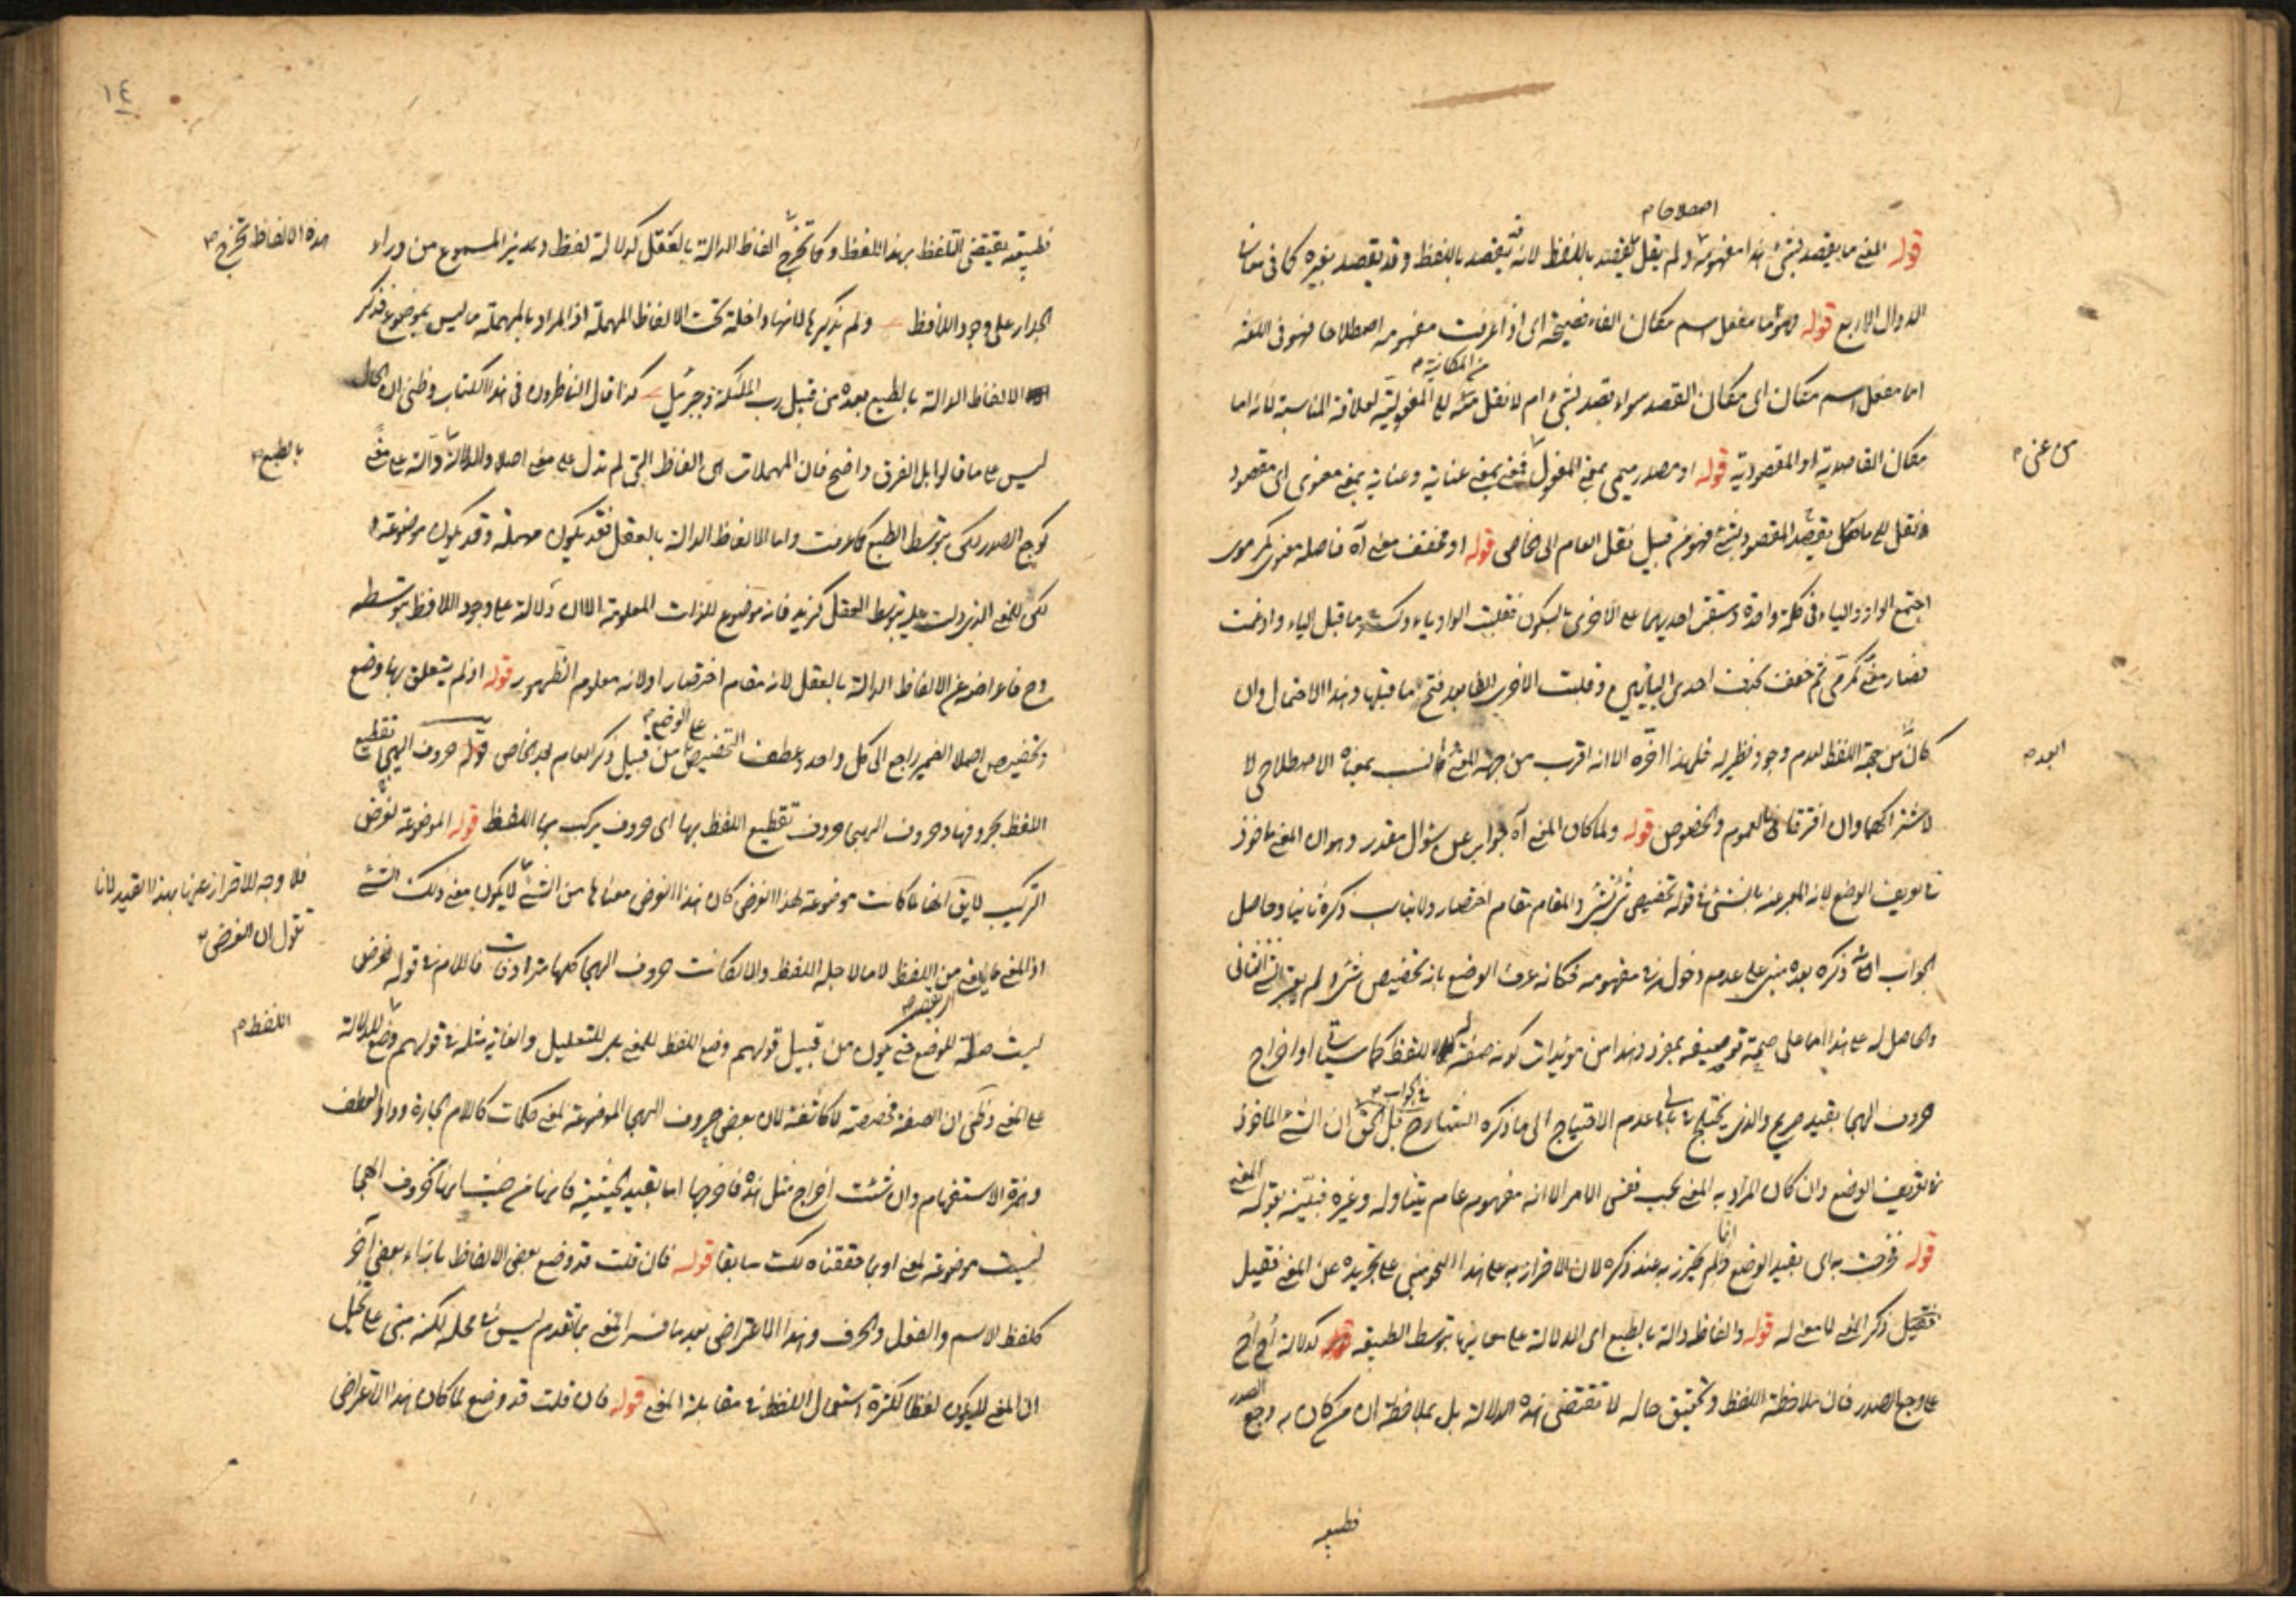 اصطلاحا صح
قوله المعنى ما يقصد بشئ هذا مفهومه ولم يقل يقصد باللفظ لانه قد يقصد باللفظ وقد يقصد بغيره كما فى معانى
الدوال الاربع قوله وهو اما مفعل اسم مكان الفاء فصيحة اى اذا عرفت مفهومه اصطلاحا فهو فى اللغة
من المكانية صح
اما مفعل اسم مكان اى مكان القصد سواء يقصد بشئ ام لا نقل منه الى المفعولية لعلاقة المناسبة لانه اما
مكان القاصدية او المقصودية قوله او مصدر ميمى بمعنى المفعول فمعنى بمعنى عناية وعناية بمعنى معنوى اى مقصود
من عنى صح
ونقل الى ما يقصد المقصود بشئ فهو من قبيل نقل العام الى الخاص قوله او مخفف معنى آه فاصله معنوى كمرموى
اجتمع الواو والياء فى كلمة واحدة وسبقت احديهما على الاخرى بالسكون فقلبت الواو ياء وكسر ما قبل الياء وادغمت
فصار معنى كمرمى ثم خفف بحذف احدى اليائين وقلبت الاخرى الفا بعد فتح ما قبلها وهذا الاحتمال وان
كان من جهة اللفظ لعدم وجود نظير له فلهذا اخره الا انه اقرب من جهة المعنى وانسب بمعناه الاصطلاحى لا
ابعد صح
لاشتراكهما وان افترقا فى العموم والخصوص قوله ولما كان المعنى آه جواب عن سؤال مقدر وهو ان المعنى ماخوذ
فى تعريف الوضع لانه المعبر عنه بالشئ فى قوله تخصيص شئ بشئ والمقام مقام اختصار ولا يناسب ذكره ثانيا وحاصل
الجواب ان ذكره بعده مبنى على عدم دخوله فى مفهومه فكانه عرف الوضع بانه تخصيص شئ ولم يعتبر الشئ الثانى
والحاصل له على هذا اما على صحة توصيفه بمفرد وهذا من مؤيدات كونه صفة للفظ كما سيأتى او اخراج
حروف الهجا بقيد صريح والذى يختلج فى بالى عدم الاحتياج الى ما ذكره الشارح بل الحق ان الشئ الماخوذ
فى الجواب صح
فى تعريف الوضع وان كان المراد به المعنى بحسب نفس الامر الا انه مفهوم عام يتناوله وغيره فبينه بقوله لمعنى
قوله فخرجت به اى بقيد الوضع وانما لم يحترز به عند ذكره لان الاحتراز به على هذا النحو مبنى على تجريده عن المعنى فقيل
ذكر المعنى لا معنى له قوله والفاظ دالة بالطبع اى الدلالة على معانيها بتوسط الطبيعة قوله كدلالة أح أح
على وجع الصدر فان ملاحظة اللفظ وتحقيق حاله لا تقتضى هذه الدلالة بل بملاحظة ان من كان به وجع الصدر
فطبيعه
١٤
فطبيعته يقتضى التلفظ بهذا اللفظ وكما تخرج الفاظ الدالة بالعقل كدلالة لفظ ديز المسموع من وراء
هذه الالفاظ تخرج صح
الجدار على وجود اللافظ ولم يذكرها لانها داخلة تحت الالفاظ المهملة اذ المراد بالمهملة ما ليس بموضوع فذكر
الالفاظ الدالة بالطبع بعده من قبيل رب الملئكة وجبرئيل كذا قال الناظرون فى هذا الكتاب وظنى ان الحال
ليس على ما قالوا بل الفرق واضح فان المهملات هى الفاظ التى لم تدل على معنى اصلا والدالة دالة على معنى
بالطبع صح
كوجع الصدر لكن بتوسط الطبع كما عرفت واما الالفاظ الدالة بالعقل فقد يكون مهملة وقد يكون موضوعة
لكن للمعنى الذى دلت عليه بتوسط العقل كزيد فانه موضوع للذات المعلومة الا ان دلالته على وجود اللافظ بتوسطه
وح فاعراضه عن الالفاظ الدالة بالعقل لانه مقام اختصار او لانه معلوم الظهور قوله اذ لم يتعلق بها وضع
على الوضع صح
وتخصيص اصلا الضمير راجع الى كل واحد وعطف التخصيص من قبيل ذكر العام بعد الخاص قوله حروف الهجاء تقطيع
اللفظ بحروفها وحروف الهجا حروف تقطيع اللفظ بها اى حروف يركب بها اللفظ قوله الموضوعة لغرض
التركيب لا يق انها لما كانت موضوعة لهذا الغرض كان هذا الغرض معناها من الشئ لا يكون معنى ذلك الشئ
فلا وجه للاحتراز عنها بهذا القيد لانا
نقول ان الغرض صح
اذ المعنى ما يعنى من اللفظ لا ما لاجله اللفظ والا لكانت حروف الهجا كلها مترادفات فاللام فى قوله لغرض
ليست صلة للوضع حتى يكون من قبيل قولهم وضع اللفظ للمعنى بل للتعليل والغاية مثله فى قولهم وضع للدلالة
اللفظ صح
على المعنى وظنى ان الصفة مخصصة لا كاشفة لان بعض حروف الهجا الموضوعة لمعنى كلمات كاللام الجارة وواو العطف
وهمزة الاستفهام وان شئت اخراج مثل هذه فاخرجها اما بقيد الحيثية فانها من حيث انها حروف الهجا
ليست موضوعة لمعنى او بما حققناه لك سابقا قوله فان قلت قد وضع بعض الالفاظ بازاء بعض آخر
كلفظ الاسم والفعل والحرف وهذا الاعتراض بعد ما فسر المعنى بما تقدم ليس فى محله لكنه مبنى على تخيل
ان المعنى لا يكون لفظا لكثرة استعمال اللفظ فى مقابلة المعنى قوله فان قلت قد وضع لما كان هذا الاعتراض